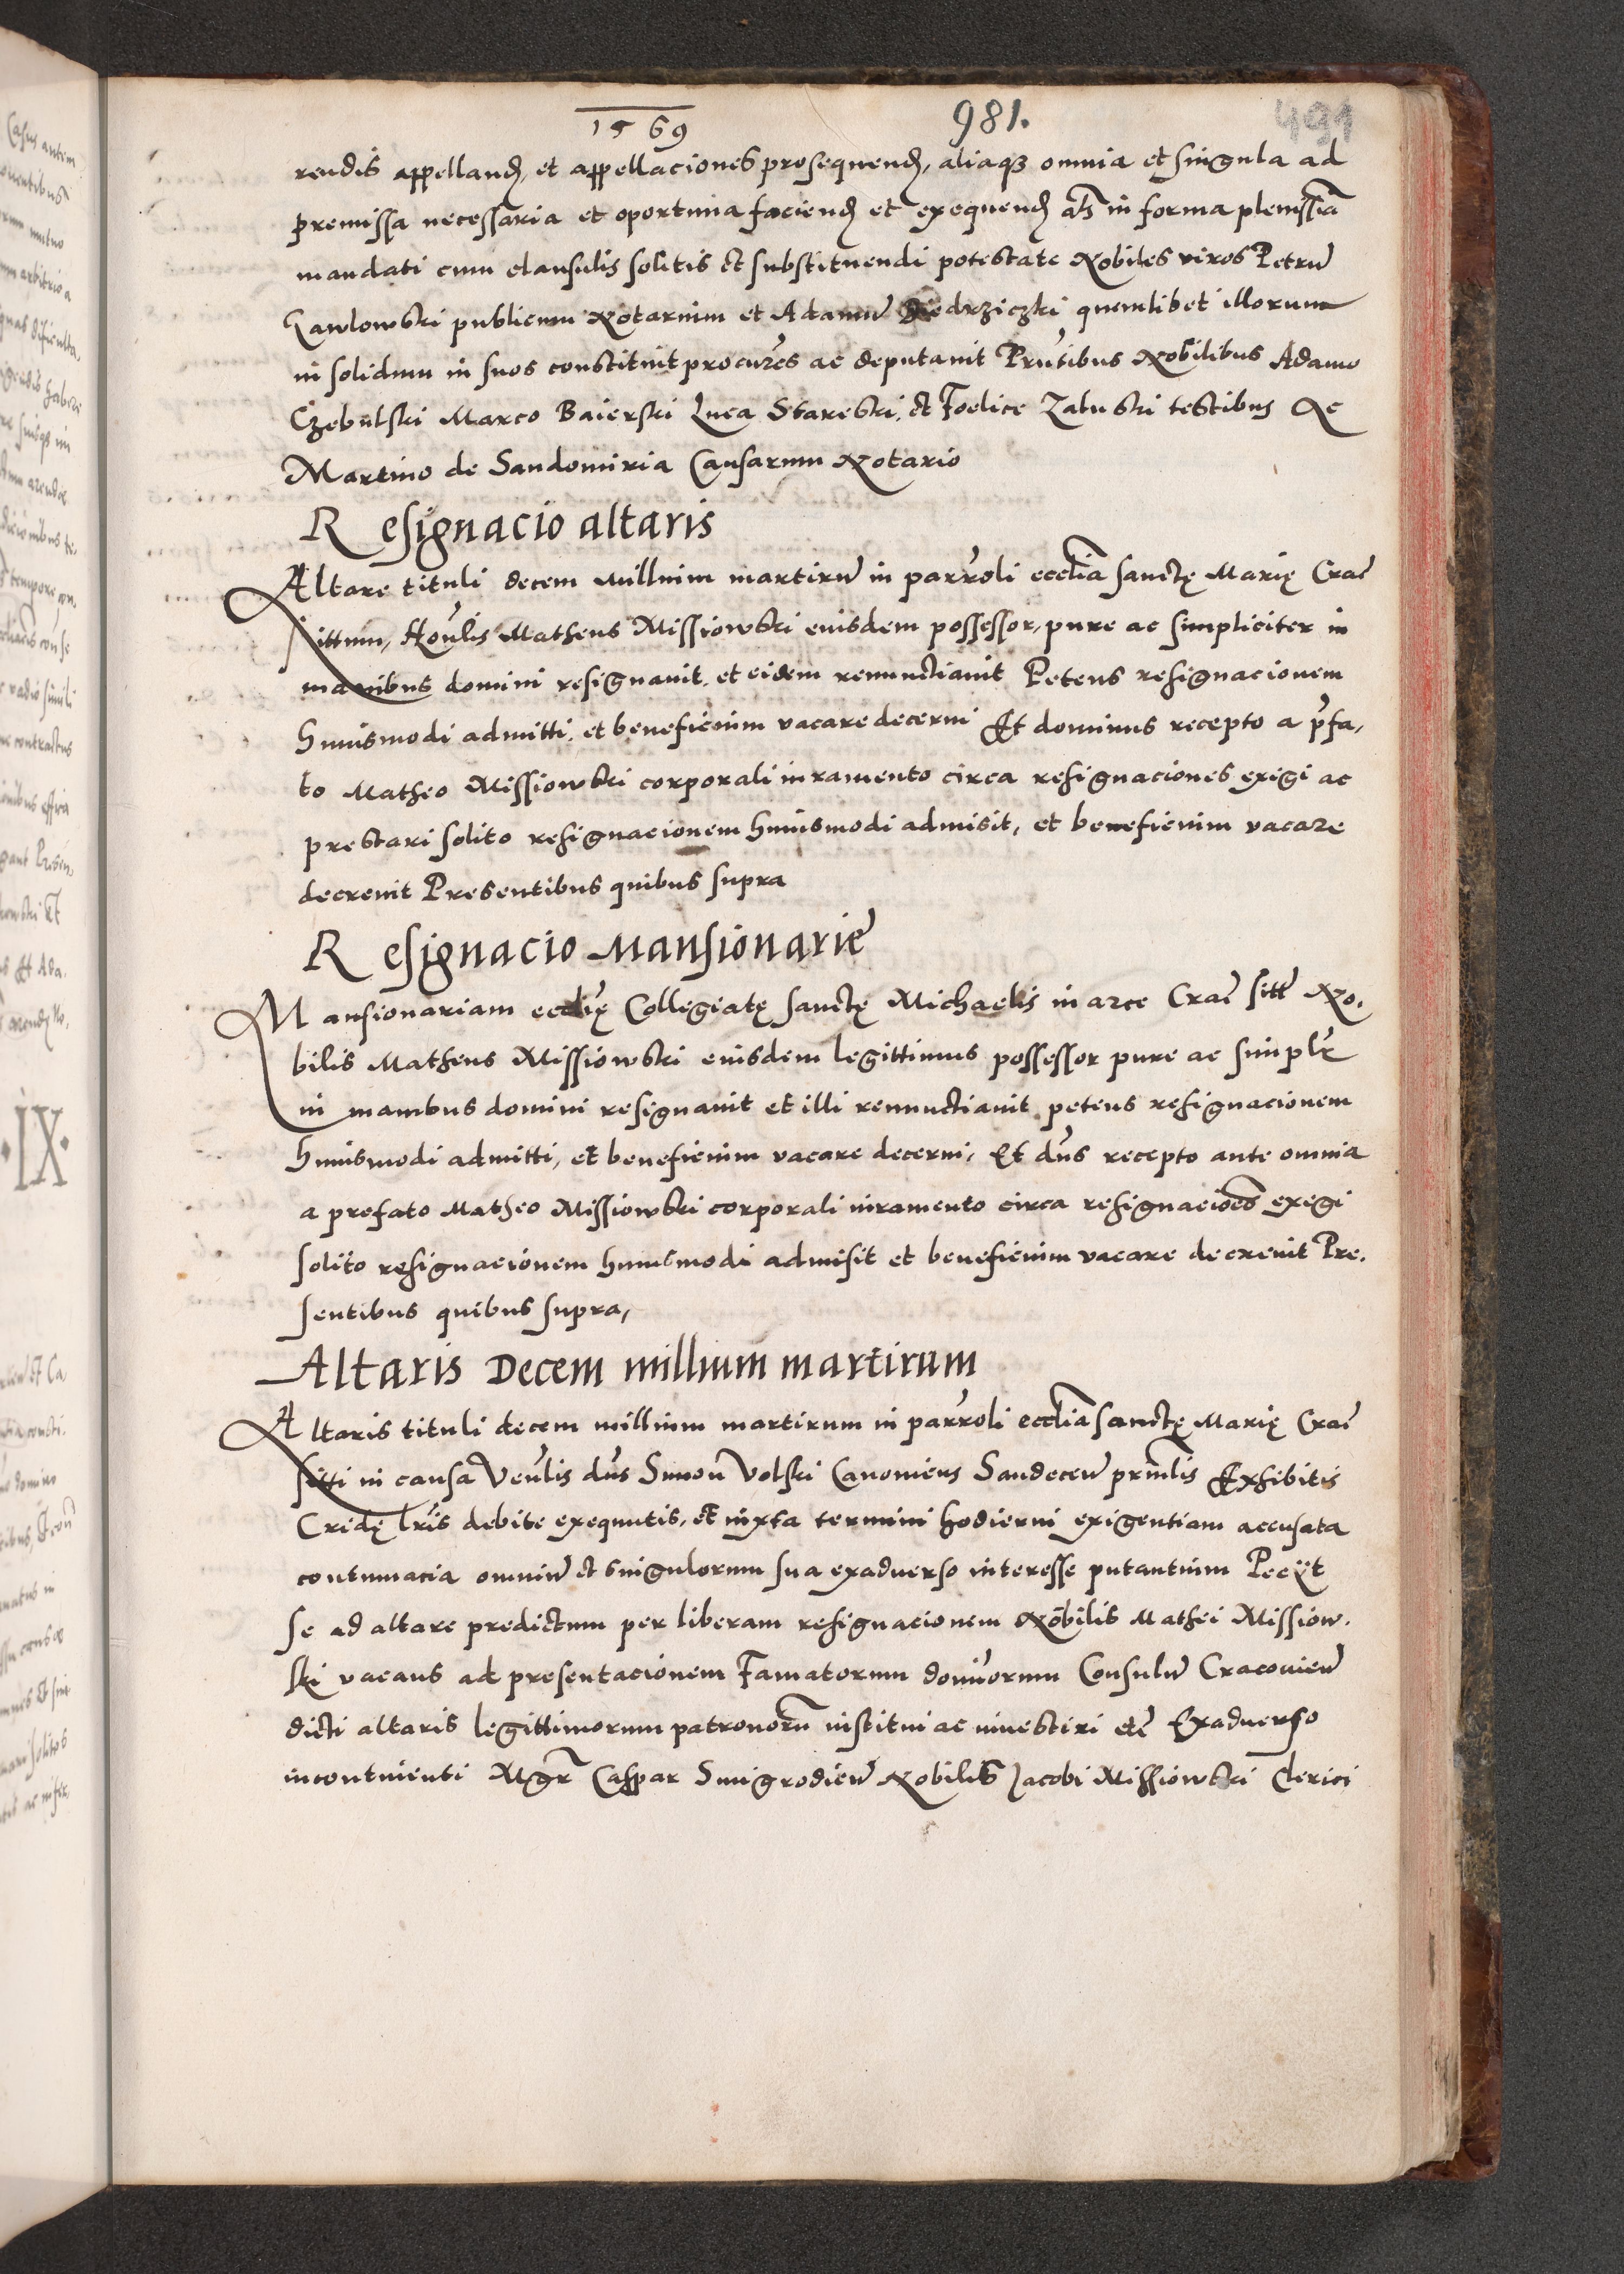 1569 981. 491
rendis appellanđ, et appellaciones prosequenđ, aliaqȝ omnia et singula ad
premissa necessaria et oportuna facienđ et exequenđ als in forma plenissia
mandati cum clausulis solitis et substituendi potestate Nobiles viros Petrū
Gawlowski publicum Notarium et Adamū quemlibet illorum
in solidum in suos constituit procures ac deputauit Prntibus Nobilibus Adamo
Czebulski Marco Baierski Luca Skarbski, et Foelice Zaluski testibus &c
Martino de Sandomiria Causarum Notario
Resignacio altaris
Altare tituli decem Millium martirū in parroli ecclia sanctę Marię Crac
sittum, Hon̄lis Matheus Missiowski euisdem possessor, pure ac simpliciter in
manibus domini resignauit, et eidem renunctiauit Petens resignacionem
huiusmodi admitti, et beneficium vacare decerni Et dominus recepto a p̄fa,
to Matheo Missiowski corporali iuramento circa resignaciones exigi ac
prestari solito resignacionem huiusmodi admisit, et beneficium vacare
decreuit Presentibus quibus supra
Resignacio Mansionarie
Mansionariam ecclię Collegiatę sanctę Michaelis in arce Crac sitt No,
bilis Matheus Missiowski euisdem legittimus possessor pure ac simplr
in manibus domini resignauit et illi renunctiauit petens resignacionem
huiusmodi admitti, et beneficium vacare decerni, Et dns recepto ante omnia
a prefato Matheo Missiowski corporali iuramento circa resignacioēs exegi
solito resignacionem huiusmodi admisit et beneficium vacare decreuit Pre,
sentibus quibus supra,
Altaris Decem millium martirum
Altaris tituli decem millium martirum in parroli ecclia sanctę Marię Crac
sitti in causa Ven̄lis dns Simon Volski Canonicus Sandecen̄ prinlis Exhibitis
Cridę lris debite exequutis, et iuxta termini hodierni exigentiam accusata
contumacia omniū et singulorum sua exaduerso interesse putantium Pecijt
se ad altare predictum per liberam resignacionem Nobilis Mathei Missiow,
ski vacans ad presentacionem Famatorum dominorum Consulū Cracouien̄
dicti altaris legittimorum patronorū institui ac inuestiri etc Exaduerso
incontinenti Mgr Caspar Smigrodien̄ Nobilis Jacobi Missiowski Clerici